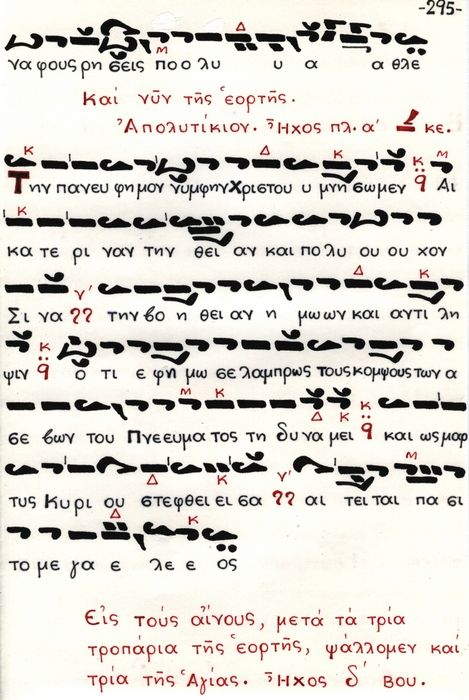 -295-
να φους ρη σεις πο ο λυ υ α α θλε
Καί νῦν τῆς ἑορτῆς.
Ἀπολυτίκιον. Ἦχος πλ. α΄ κε.
Την παν ευ φη μον νυμ φην Χριστου υ μνη σω μεν Αι
κα τε ρι ναν την θει αν και πο λυ ου ου χον
Σι να την βο η θει αν η μω ων και αν τι λη
ψιν ο τι ε φη μω σε λαμ πρως τους κομ ψους των α
σε βων του Πνε ευ μα τος τη δυ να μει και ως μαρ
τυς Κυ ρι ου στε φθει ει σα αι τει ται πα σι
το με γα ε λε ε ος
Εἰς τούς αἴνους, μετά τά τρία
τροπάρια τῆς ἑορτῆς, ψάλλομεν καί
τρία τῆς Ἁγίας. Ἦχος δ΄ βου.